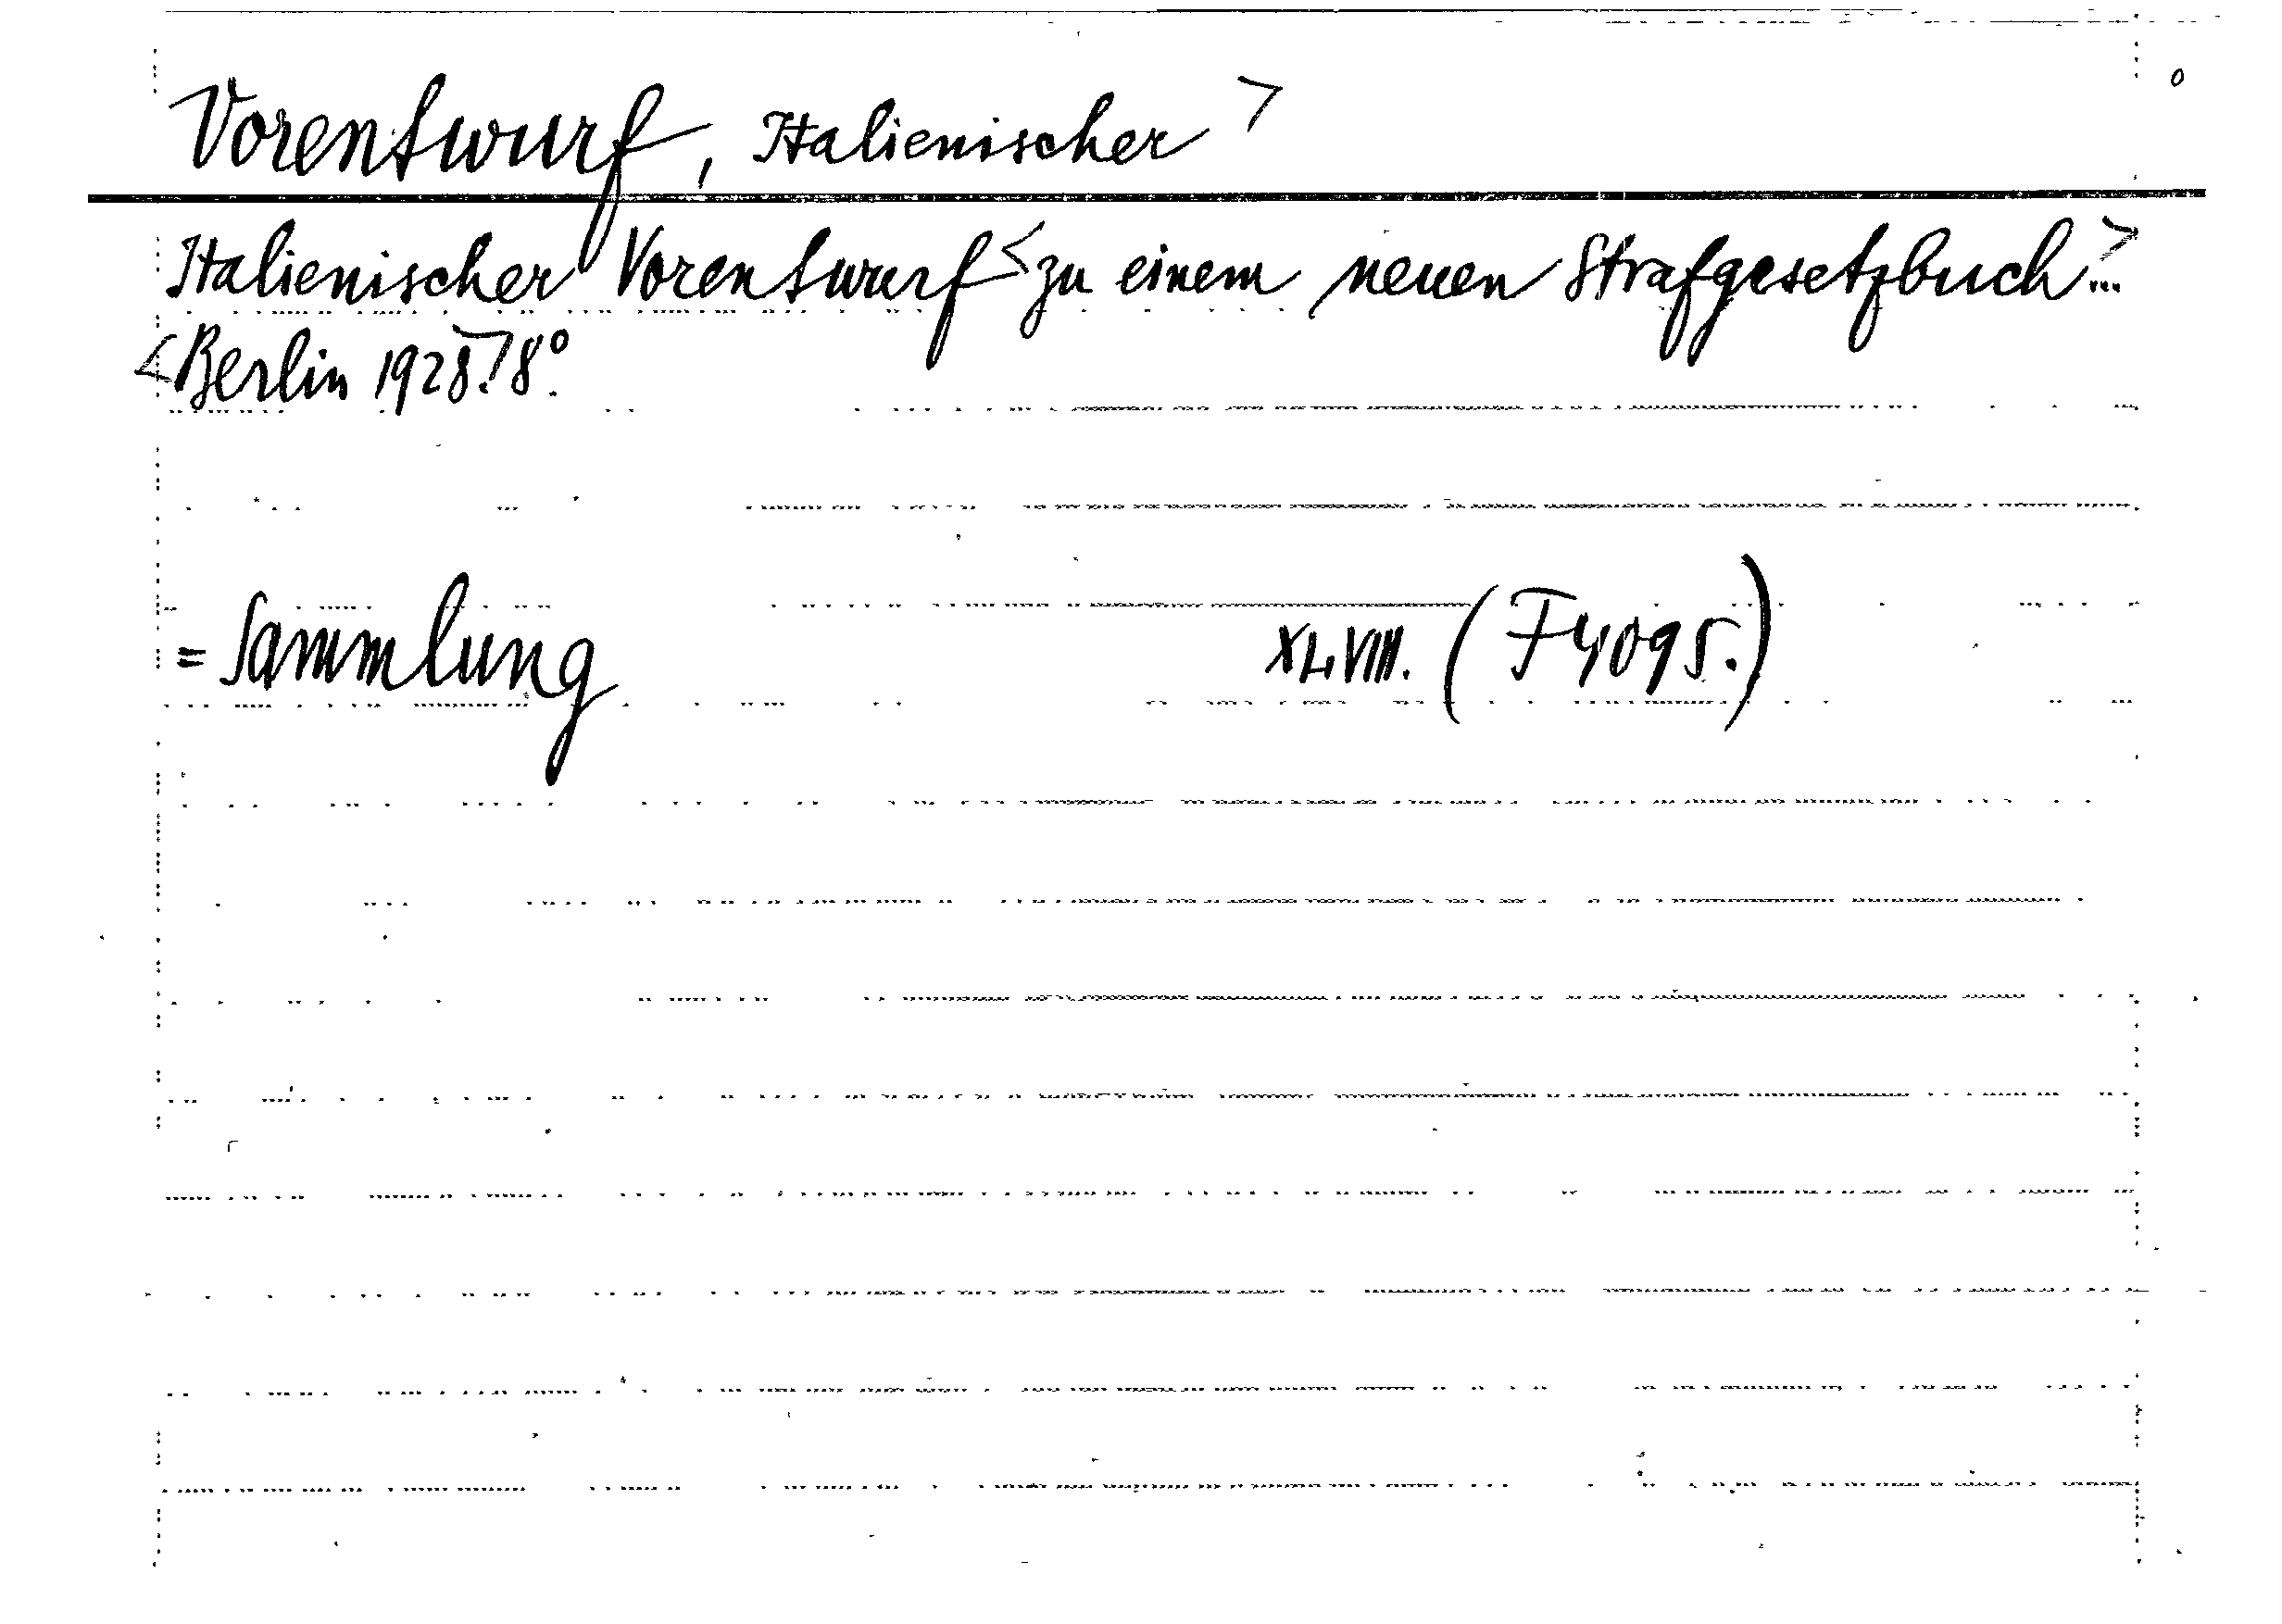 Vorentwurf, Italienischer >
Italienischer Vorentwurf < zu einem neuen Strafgesetzbuch. > ..
< Berlin 1928. > 8°.
= Sammlung XLVIII. (F4095.)